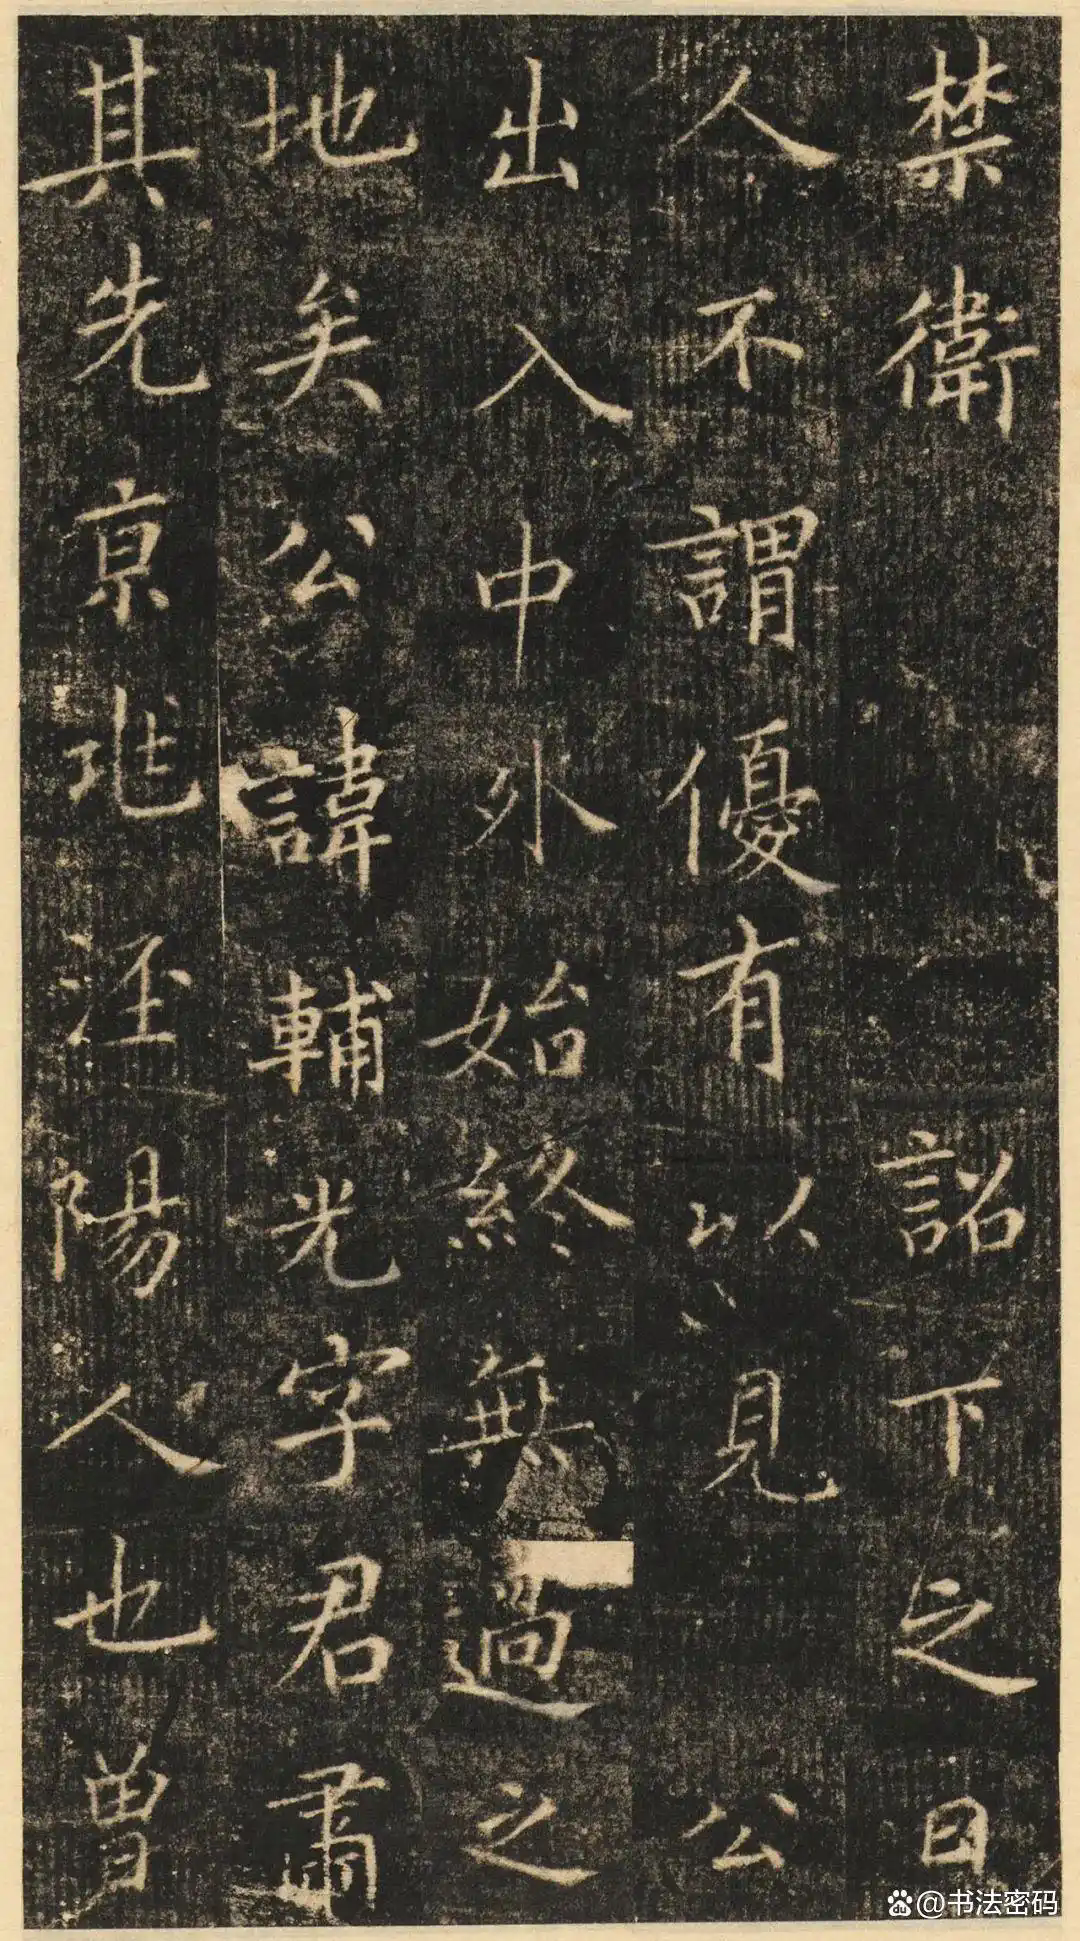 禁衛詔下之日
人不謂優有以見公
出入中外始終無過之
地矣公諱輔光字君肅
其先京兆涇陽人也曾
@书法密码